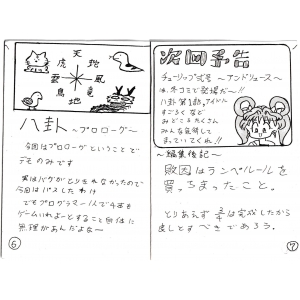 天
虎 蛇
雲 風
鳥 竜
地
八卦 〜プロローグ〜
今回はプロローグということで
デモのみです
実はバグがとりきれなかったので
今回はパスしたわけ
でもプログラマー1人で4本も
ゲームいれよーとすること自体に
無理があんだよな〜
⑥
次回予告
チュージップ式号 〜アンドジュース〜
は、ネコミミで登場だ〜!!
八卦 第1話、アイドル
すごろく など
みどころたくさん
みんな気待して
まっていてくれ!!
〜編集後記〜
敗因はランペルールを
買っちまったこと。
とりあえず 3/4は完成したから
良しとすべきであろう。
⑦